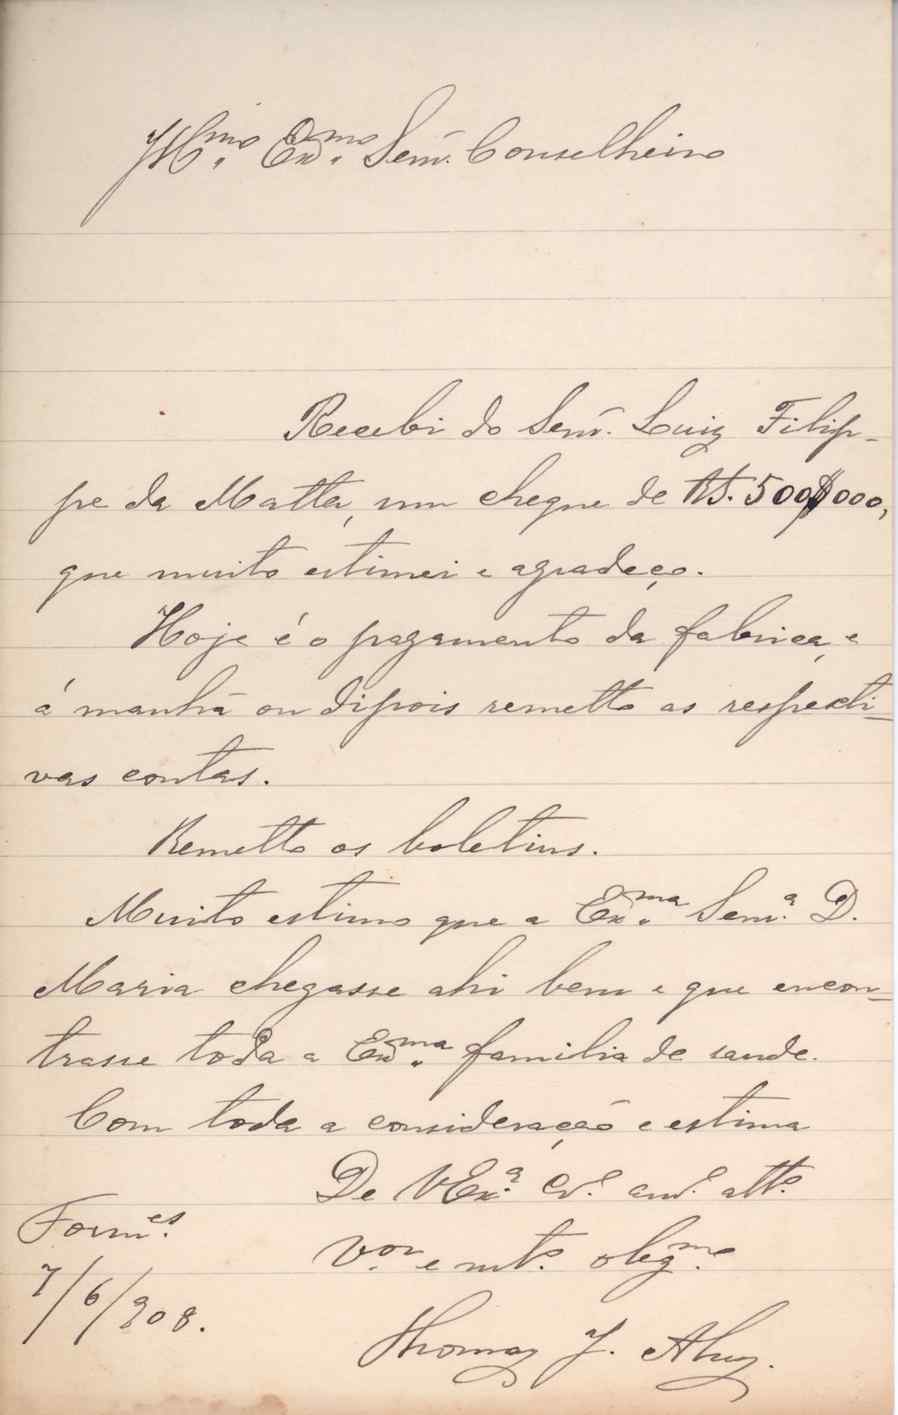 Illmo. Exmo. Senr. Conselheiro
Recebi do Senr. Luiz Filip-
pe da Matta, um cheque de RS. 500$000,
que muito estimei e agradeço.
Hoje é o pagamento da fabrica, e
á manhã ou dipois remetto as respecti-
vas contas.
Remetto os boletins.
Muito estimo que a Exma. Senra. D.
Maria chegasse ahi bem e que encon-
trasse toda a Exma. familia de saude.
Com toda a consideração e estima
De VExa. Cro. amo. atto.
Vor. e mto. obrigmo.
Formes.
7/6/908.
Thomaz J.